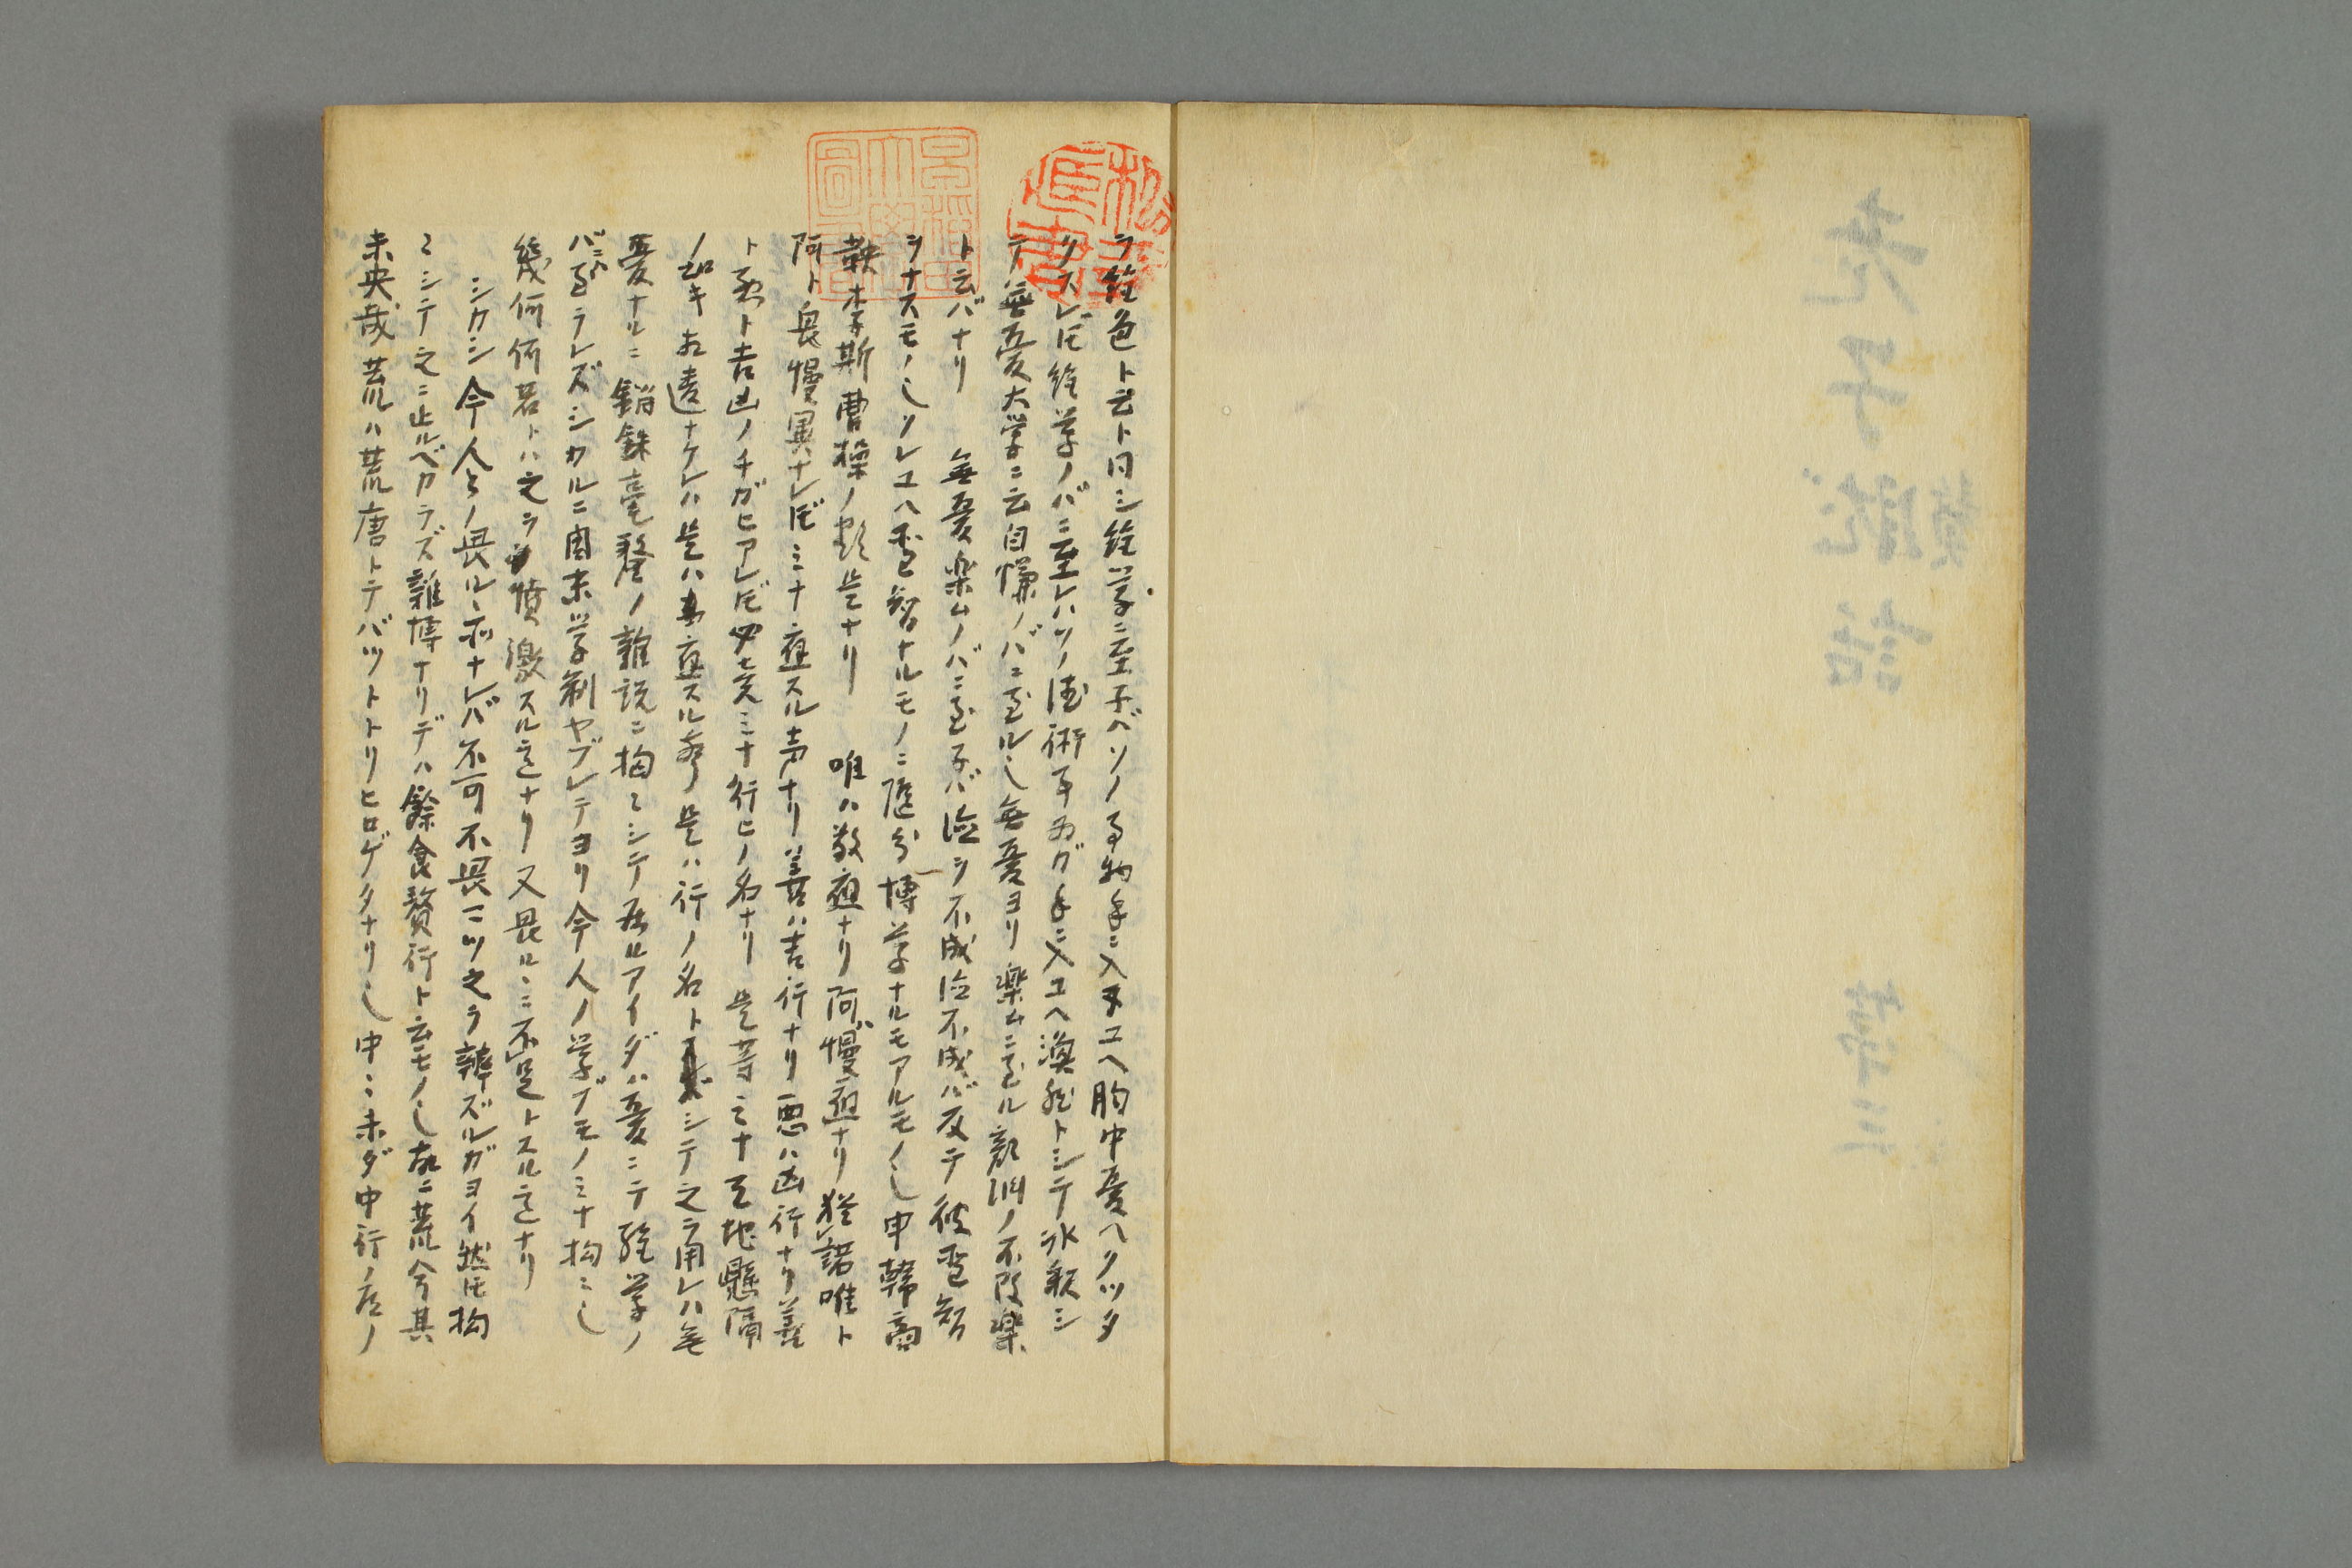 ヲ絶色ト云ト同シ絶学ニ至子バソノ事物手ニ入ヌユヘ胸中憂ヘクツタ
クスレ𪜈絶学ノバニ至レハソノ道術事為ガ手ニ入ユヘ渙然トシテ氷釈シ
テ無憂大学ニ云自慊ノバニ至ル也無憂ヨリ楽ムニ至ル顔渊ノ不改楽
ト云バナリ 無憂楽ムノバニ至子バ治シ不成治不成バ反テ彼亜智
ヲナスモノ也ソレユヘ亜智ナルモノニ随分博学ナルモアルモノ也申韓商
鞅李斯曹操ノ類是ナリ 唯ハ敬應ナリ阿ハ慢應ナリ猶諾唯ト
阿ト畏慢異ナレ𪜈ミナ應スル声ナリ善ハ吉行ナリ悪ハ凶行ナリ善
ト悪ト吉凶ノチガヒアレ𪜈ミナ行ヒノ名ナリ是等ミナ天地懸隔
ノ如キ相違ナケレハ是ハ應スル声是ハ行ノ名トシテ之ヲ用レハ無
憂ナルニ錙銖毫釐ノ雑説ニ拘ミシテ居ルアイダハ憂ニテ絶学ノ
バニ至ラレズシカルニ周末学制ヤブレテヨリ今人ノ学ブモノミナ拘ミ也
幾何何若トハ之ヲ憤激スル意ナリ又畏ルヽニ不足トスル意ナリ
シカシ今人々ノ畏ルヽ所ナレバ不可不畏一ツ之ヲ辨ズルガヨイ然𪜈拘
ミシテ之ニ止ルベカラズ雑博ナリデハ餘食贅行ト云モノ也故ニ荒兮其
未央哉荒ハ荒唐トテバツトトリヒロゲタナリ也中ニ未ダ中行ノ居ノ